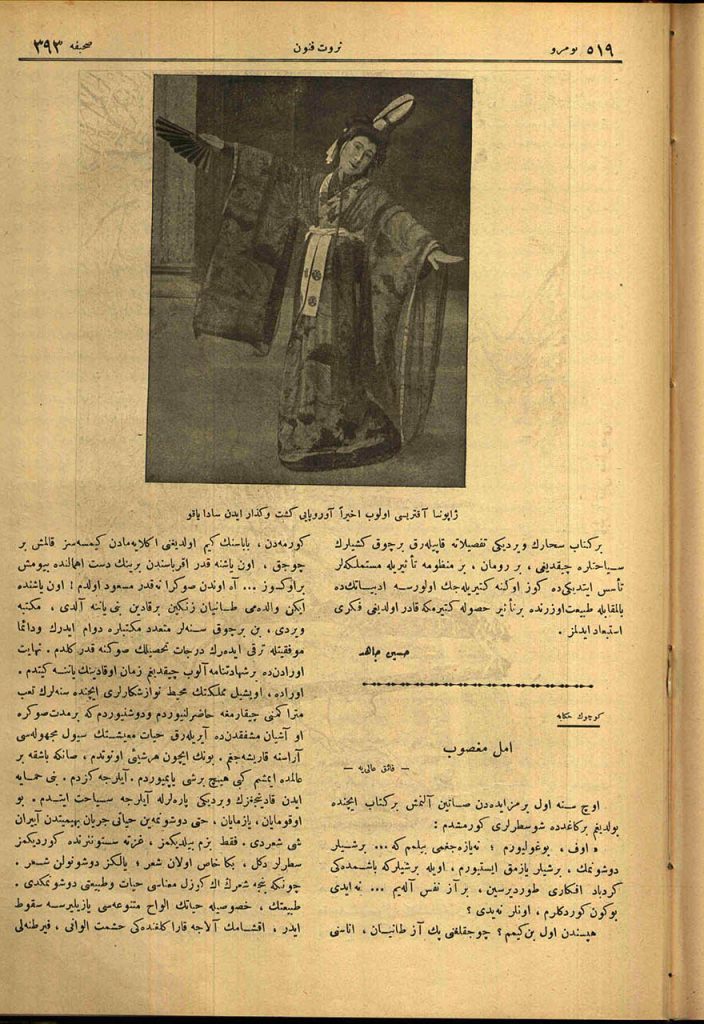 نومرو ٥١٩
ثروت فنون
صحیفه ٣٩٣
ژاپونیا آقتریسی اولوب اخیراً آوروپایی کشت وکذار ایدن سادا یاقو
برکتاب سحارك ویردیکی تفصیلاته قاپیله‌رق برچوق کشیلرك
سیاحتلره چیقدیغی ، بر رومان ، بر منظومه تأثیریله مستملکه‌لر
تأسس ایتدیکی ده کوز اوکنه کتیریله‌جك اولورسه ادبیاتك ده
بالمقابله طبیعت اوزرنده برتأثیر حصوله کتیرمکه قادر اولدیغی فکری
استبعاد ایدلمز .
حسین جاهد
کوچوك حکایه
امل مغصوب
— فائق عالی‌یه —
اوچ سنه اول برمزایده‌دن صاتین آلنمش برکتاب ایچنده
بولدیغم برکاغدده شو سطرلری کورمشدم :
« اوف ، بوغولیورم ؛ نه‌یازه‌جغمی بیلم که ... برشیلر
دوشونمك ، برشیلر یازمق ایستیورم ، اویله برشیلرکه باشمده‌کی
کردباد افکاری طوردیرسین ، بر آز نفس آله‌یم ... نه ایدی
بوکون کوردکلرم ، اونلر نه‌یدی ؟
هپسندن اول بن کیمم ؟ چوجقلغنی پك آز طانییان ، آناسنی
کورمه‌دن ، باباسنك کیم اولدیغنی اکلایه‌مادن کیمسه‌سز قالمش بر
چوجق ، اون یاشنه قدر اقرباسندن برینك دست اهمالنده بیومش
براوکسوز ... آه اوندن صوکرا نه‌قدر مسعود اولدم ! اون یاشنده
ایکن والده‌می طانییان زنکین برقادین بنی یاننه آلدی ، مکتبه
ویردی ، بن برچوق سنه‌لر متعدد مکتبلره دوام ایدرك ودائما
موفقیتله ترقی ایده‌رك درجات تحصیلك صوکنه قدر کلدم . نهایت
اورادن ده برشهادتنامه آلوب چیقدیغم زمان اوقادینك یاننه کیتدم .
اوراده ، اویشیل مملکتك محیط نوازشکارلری ایچنده سنه‌لرك تعب
متراکمنی چیقارمغه حاضرلنیوردم ودوشنیوردم که برمدت صوکره
او آشیان مشفقدن ده آیریله‌رق حیات معیشتك سیول مجهوله‌سی
آراسنه قاریشه‌جغم . بونك ایچون هرشیئی اونوتدم ، صانکه باشقه بر
عالمده ایمشم کبی هیچ برشی یاپمیوردم . آیلرجه کزدم . بنی حمایه
ایدن قادینجغزك ویردیکی پاره‌لرله آیلرجه سیاحت ایتدم . بو
اوقومایان ، یازمایان ، حتی دوشونمه‌ین حیاتی جریان بهیمیتدن آییران
شی شعردی . فقط بزم بیلدیکمز ، غزته ستونلرنده کوردیکمز
سطرلر دکل ، بکا خاص اولان شعر ؛ یالکز دوشونولن شعر .
چونکه بنجه شعرك اك کوزل معناسی حیات وطبیعتی دوشونمکدی .
طبیعتك ، خصوصیله حیاتك الواح متنوعه‌سی یازیلیرسه سقوط
ایدر ، اقشامك آلاجه قاراکلغنده‌کی حشمت الوانی ، فیرطنه‌لی